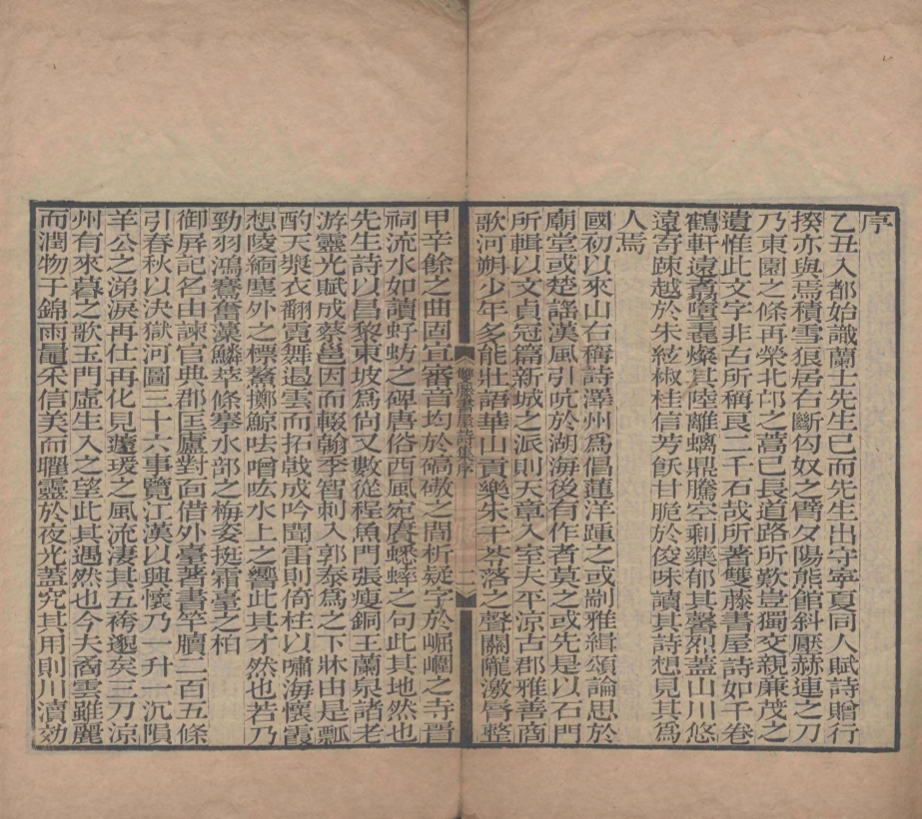 序
乙丑入都始識蘭士先生已而先生出守寧夏同人賦詩贈行
揆亦與焉積雪狼居右斷匈奴之臂夕陽熊館斜壓赫連之刀
乃東園之條再榮北邙之蒿已長道路所歎豈獨交親廉茂之
遺惟此文字非古所稱良二千石哉所著雙藤書屋詩如干卷
鶴軒遠翥墮毳燦其陸離螭鼎騰空剩藥郁其馨烈蓋山川悠
遠寄疎越於朱絃椒桂信芳飫甘脆於俊味讀其詩想見其爲
人焉
國初以來山右稱詩澤州爲倡蓮洋踵之或劘雅緝頌論思於
廟堂或楚謠漢風引吭於湖海後有作者莫之或先是以石門
所輯以文貞冠篇新城之派則天章入室夫平涼古郡雅善商
歌河朔少年多能壯語華山貢樂朱干苓落之聲關隴激脣整
雙藤書屋詩集序
一
甲辛餘之曲固宜審音均於碻磝之間析疑字於崛𡾰之寺晋
祠流水如讀蚄之碑唐俗西風宛賡蟋蟀之句此其地然也
先生詩以昌黎東坡爲尙又數從程魚門張瘦銅王蘭泉諸老
游靈光賦成蔡邕因而輟翰季智刺入郭泰爲之下牀由是瓢
酌天漿衣翻霓舞遏雲而拓戟成吟聞雷則倚柱以嘯海懷霞
想陵緬塵外之標鰲擲鯨呿噌吰水上之響此其才然也若乃
勁羽鴻騫奮藻鱗萃條搴水部之梅姿挺霜臺之柏
御屏記名由諫官典郡匡廬對面借外臺著書竿牘二百五條
引春秋以決獄河圖三十六事覽江漢以興懷乃一升一沉隕
羊公之涕淚再仕再化見蘧瑗之風流淒其五袴邈矣三刀涼
州有來暮之歌玉門虛生入之望此其遇然也今夫矞雲雖麗
而潤物于錦雨量采信美而韡靈於夜光蓋究其用則川瀆効